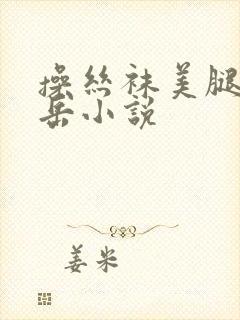 操丝袜美腿
岳小说
姜米